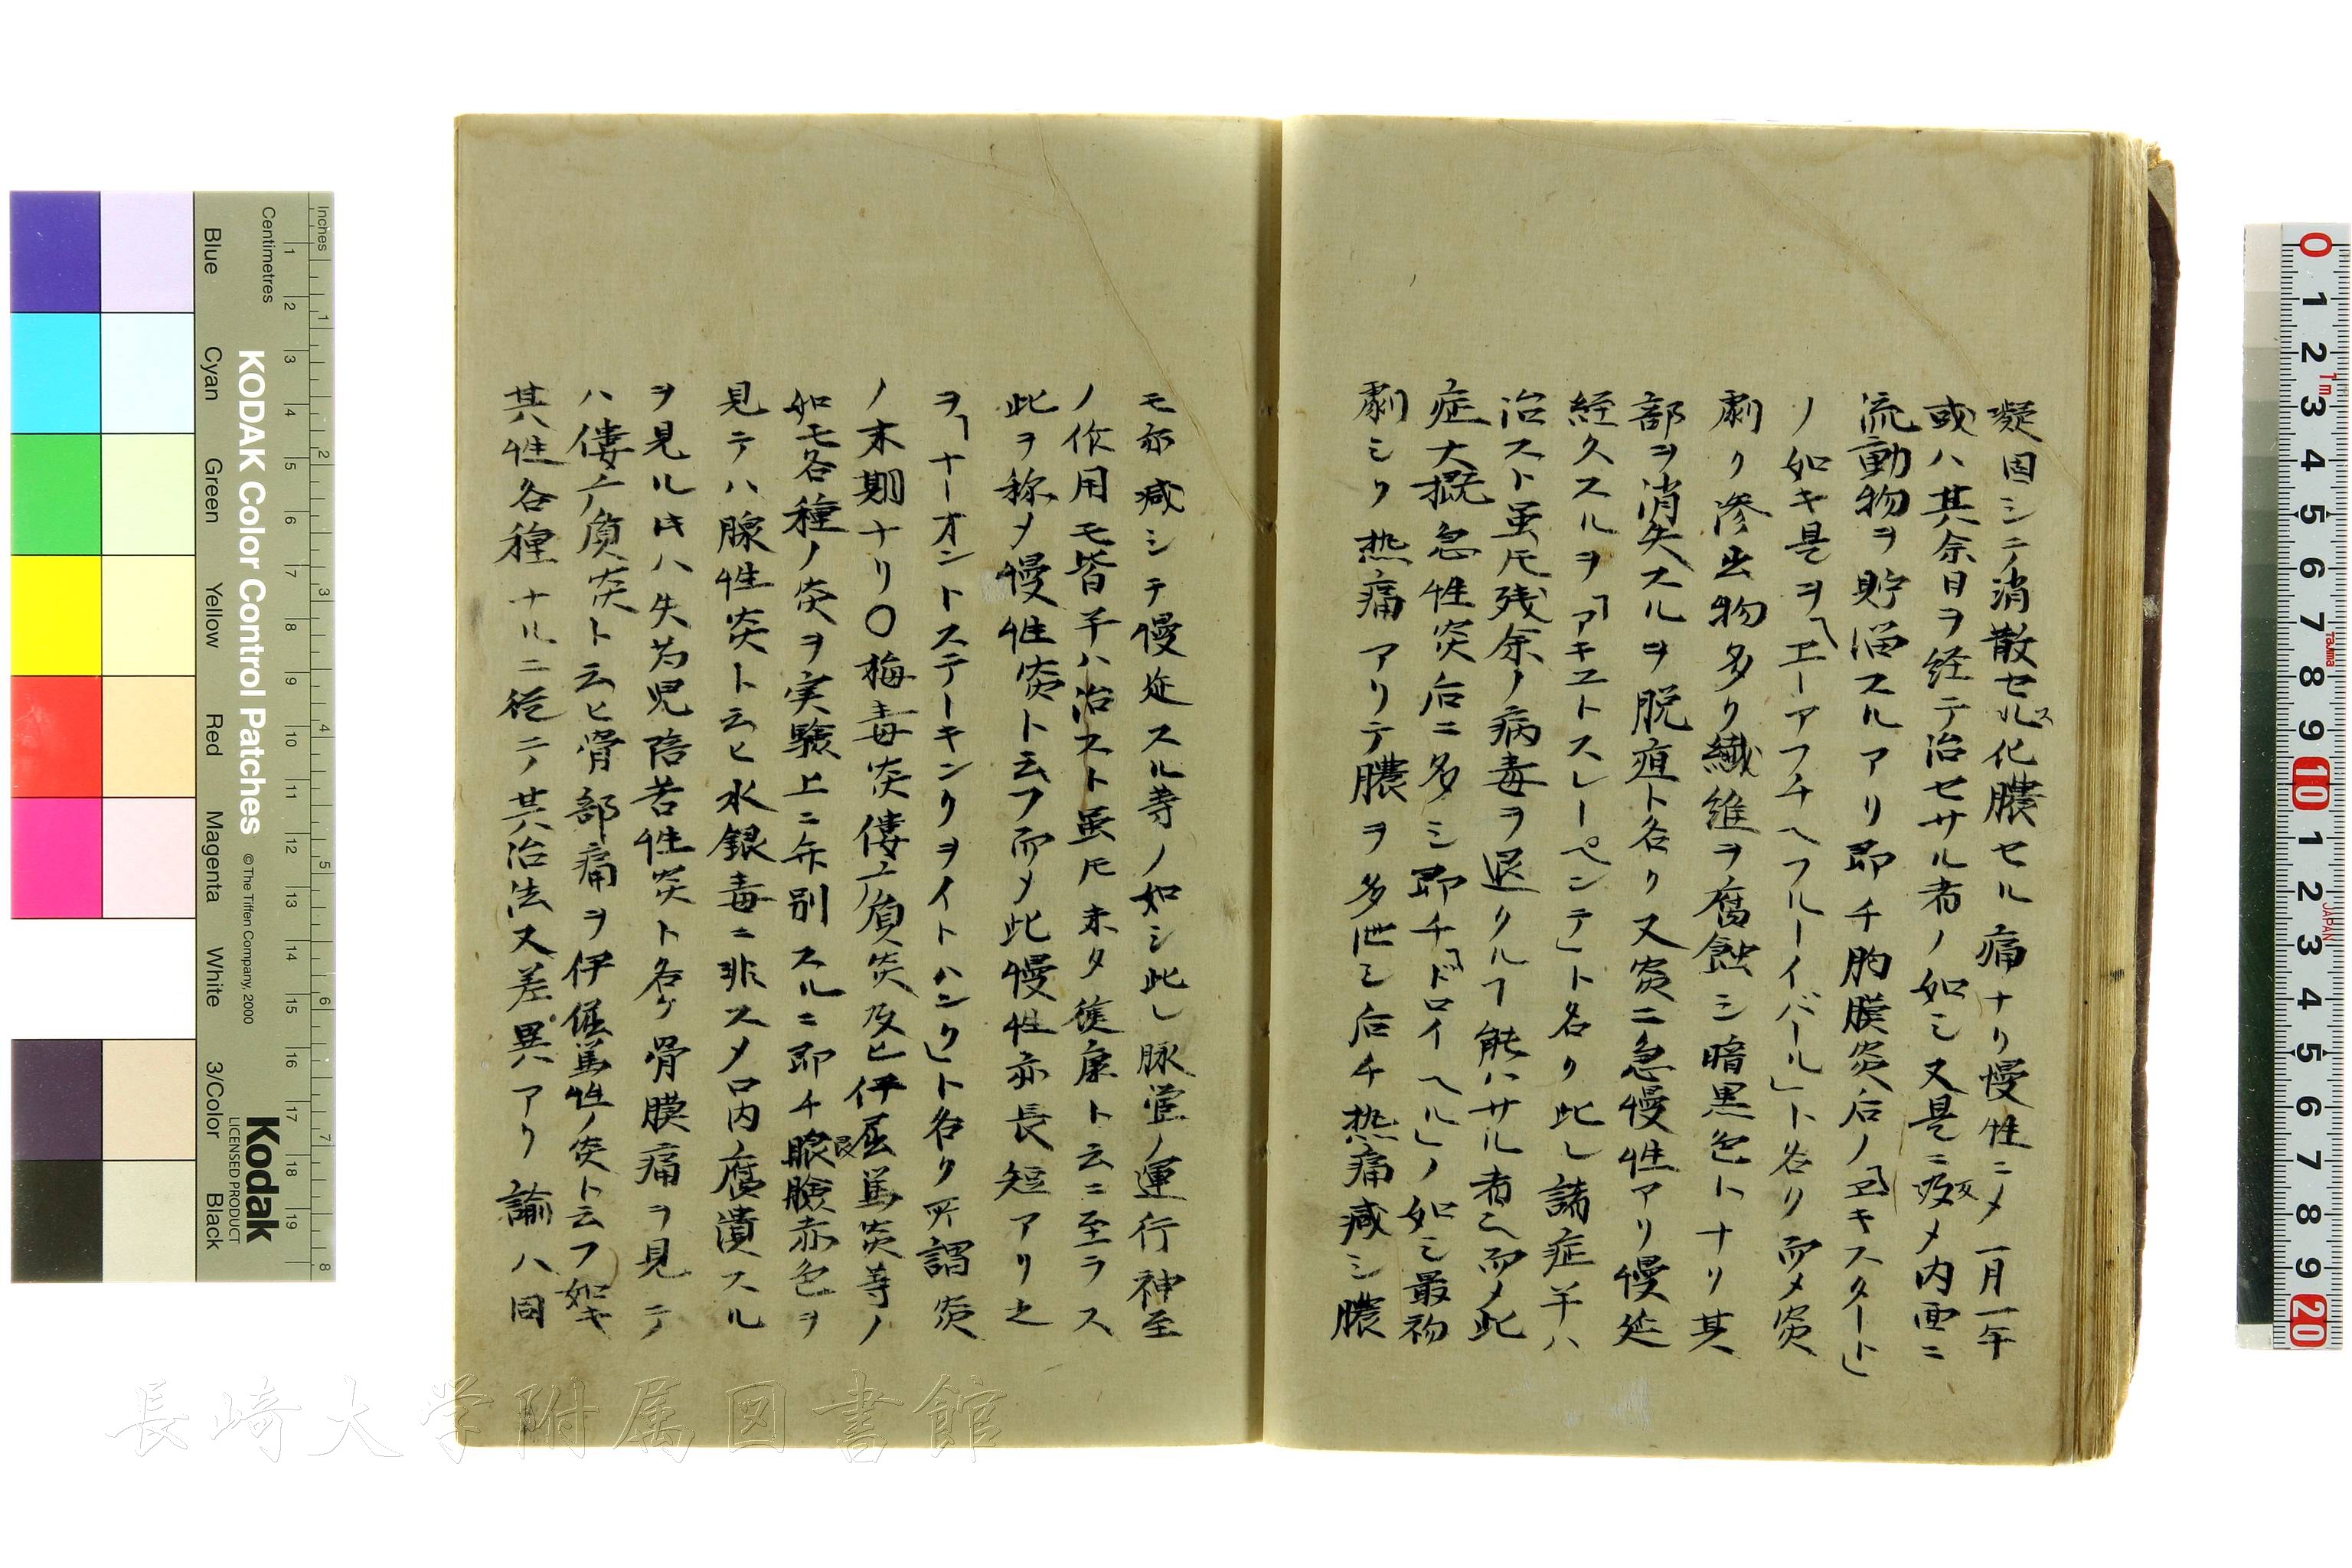 凝固シテ消散セルス化膿セル痛ナリ慢性ニメ一月一年
或ハ其余日ヲ経テ治セサル者ノ如シ又是ニ反メ内面ニ
流動物ヲ貯溜スルアリ即チ肋膜炎后ノ「エキスタート」
ノ如キ是ヲ「エーアフチヘフルーイバール」ト名ク而メ炎
劇ク滲出物多ク繊維ヲ腐蝕シ暗黒色トナリ其
部ヲ消失スルヲ脱疽ト名ク又炎ニ急慢性アリ慢延
経久スルヲ「アキユトスレーペンテ」ト名ク此レ諸症半ハ
治スト虽𪜈残余ノ病毒ヲ退クルヿ能ハサル者也而メ此
症大概急性炎后ニ多シ即チ「ドロイヘル」ノ如シ最初
劇シク熱痛アリテ膿ヲ多泄シ后チ熱痛減シ膿
モ亦減シテ慢延スル等ノ如シ此レ脉管ノ運行神至
ノ作用モ皆半ハ治スト虽𪜈未タ復康ト云ニ至ラス
此ヲ称メ慢性炎ト云フ而メ此慢性亦長短アリ之
ヲ「ナーオントステーキンクヲイトハンク」ト名ク所謂炎
ノ末期ナリ○梅毒炎僂麻質炎及ヒ伊屈篤炎等ノ
如モ各種ノ炎ヲ実験上ニ弁別スルニ即チ眼瞼赤色ヲ
見テハ腺性炎ト云ヒ水銀毒ニ非スメ口内腐潰スル
ヲ見ル𪜈ハ失苟児陪苦性炎ト名ケ骨膜痛ヲ見テ
ハ僂麻質炎ト云ヒ骨部痛ヲ伊偓篤性ノ炎ト云フ如キ
其性各種ナルニ從テ其治法又差異アリ諭ハ固
KODAK Color Control Patches
© The Tiffen Company, 2000
Kodak
LICENSED PRODUCT
Inches
Centimetres
Blue
Cyan
Green
Yellow
Red
Magenta
White
3/Color
Black
長崎大学附属図書館